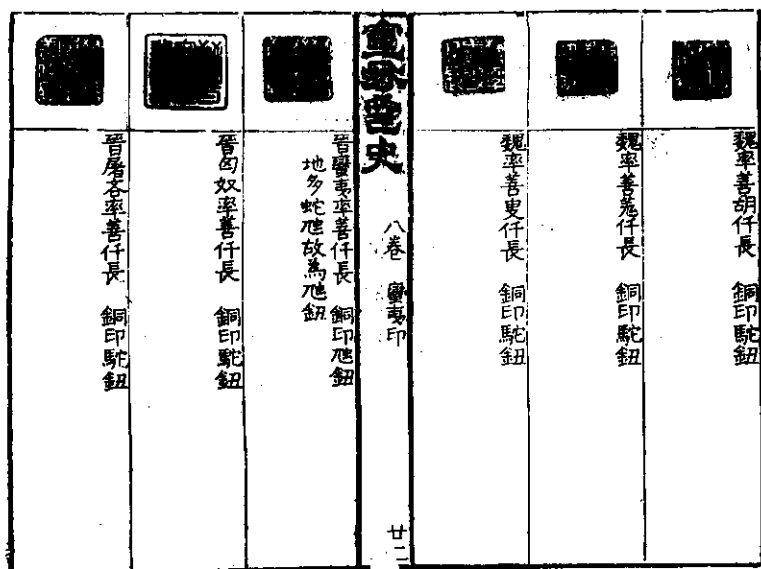 魏率善胡仟長 銅印駝鈕
魏率善羌仟長 銅印駝鈕
魏率善叟仟長 銅印駝鈕
史
八卷 蠻夷印
廿二
晉蠻夷率善仟長 銅印虺鈕
地多蛇虺故為虺鈕
晉匈奴率善仟長 銅印駝鈕
晉屠各率善仟長 銅印駝鈕